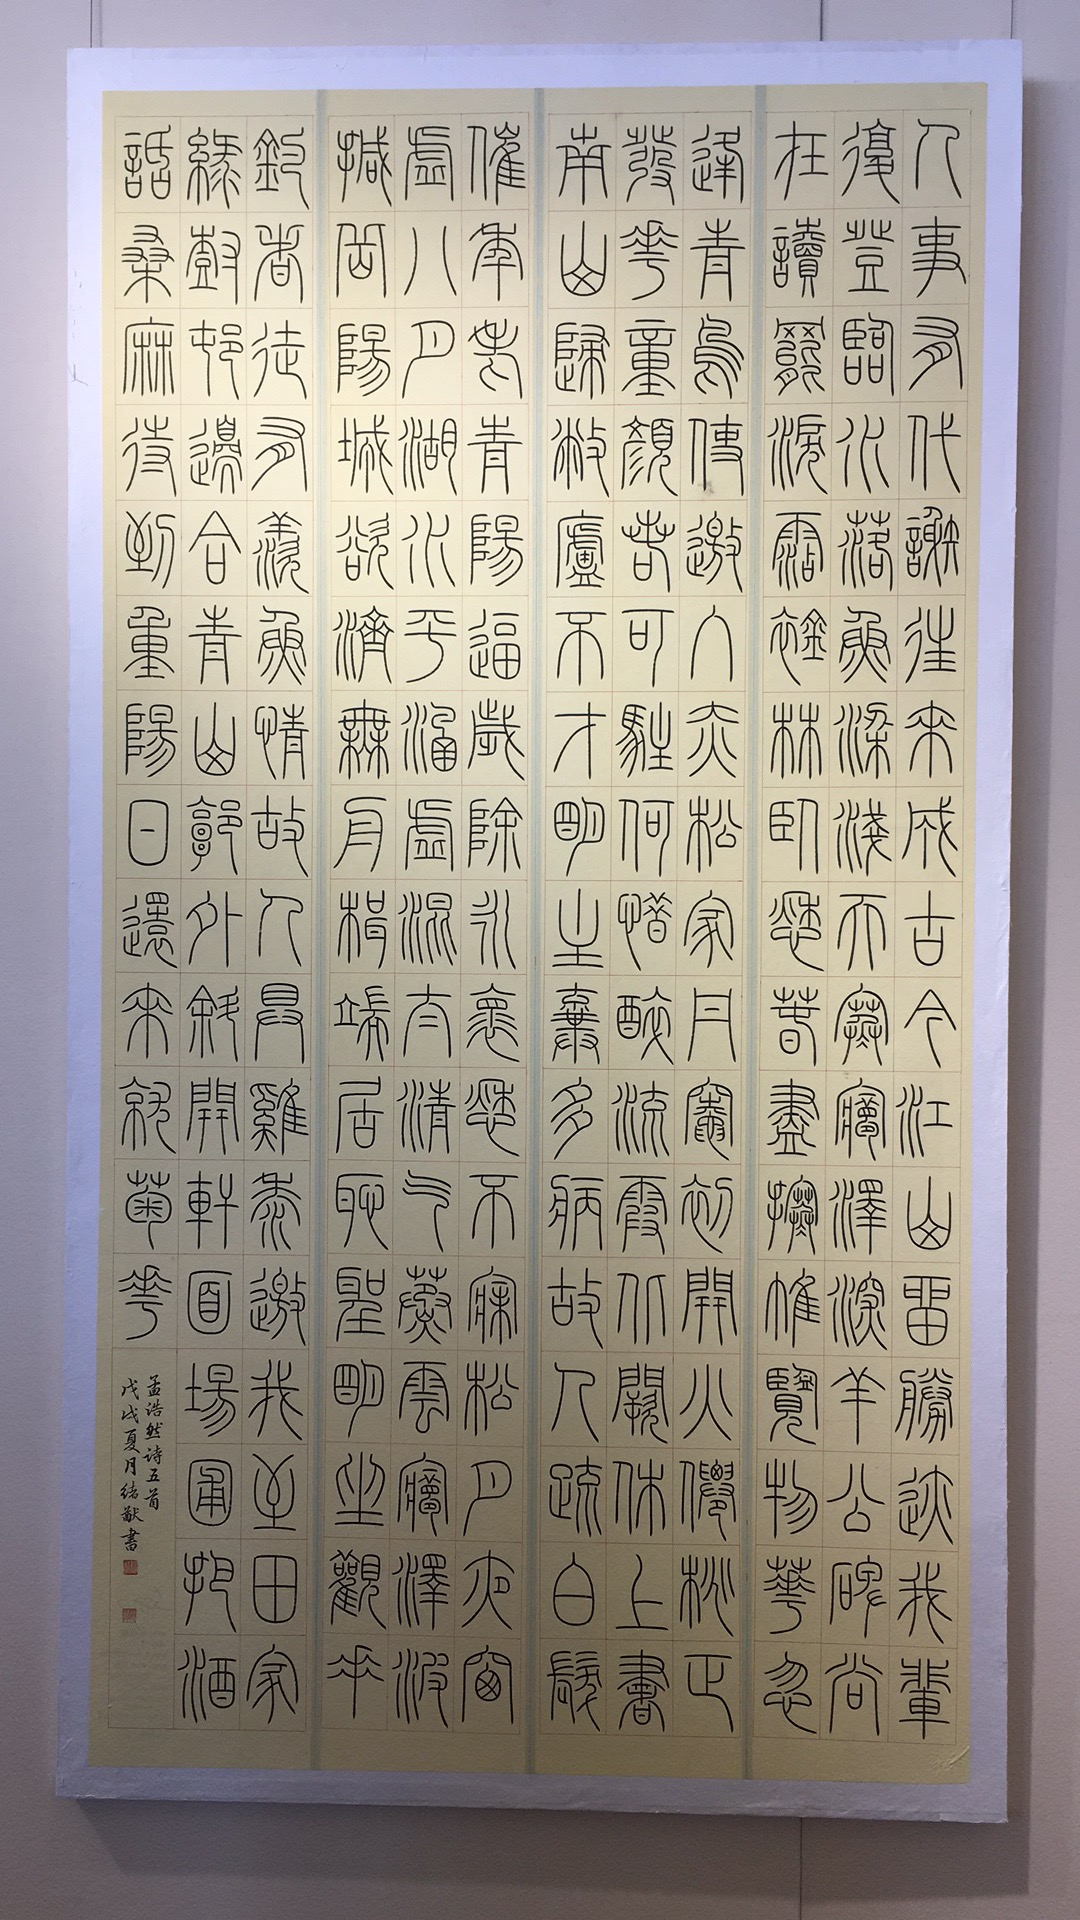 人事有代謝往來成古今江山留勝迹我輩
復登臨水落魚梁淺天寒夢澤深羊公碑尚
在讀罷淚霑襟林臥愁春盡搴帷覽物華忽
逢青鳥使邀入赤松家丹竈初開火僊桃正
發花童顏若可駐何惜醉流霞北闕休上書
南山歸敝廬不才明主棄多病故人疏白髮
催年老青陽逼歲除永懷愁不寐松月夜窗
虛八月湖水平涵虛混太清气蒸雲夢澤波
撼岳陽城欲濟無舟楫端居恥聖明坐觀垂
釣者徒有羨魚情故人具雞黍邀我至田家
綠樹邨邊合青山郭外斜開軒面場圃把酒
話桑麻待到重陽日還來就菊花
孟浩然诗五首
戊戌夏月绪猷書